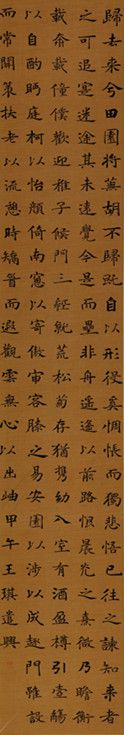 歸去來兮田園將蕪胡不歸既自以形役奚惆悵而獨悲悟已往之諫知來者
之可追寔迷途其未遠覺今是而昨非舟遙遙以前路恨晨光之熹微乃瞻衡
載奔載僮僕歡迎稚子候門三徑就荒松菊存猶攜幼入室有酒盈樽引壺觴
以自酌眄庭柯以怡顏倚南窗以寄傲審容膝之易安園以涉以成趣門雖設
而常關策扶老以流憩時矯首而遐觀雲無心以出岫甲午王琪遣興